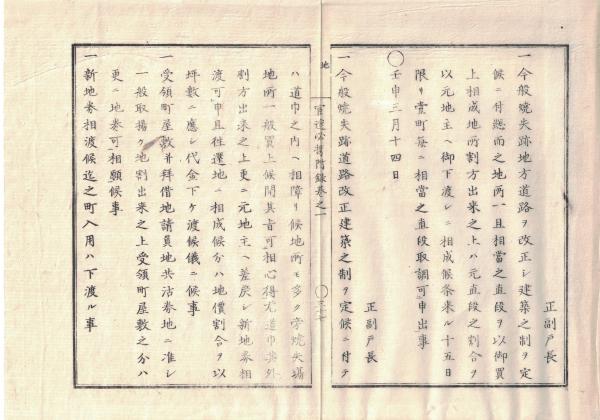 正副戸長
一 今般焼失跡地方道路ヲ改正シ建築之制ヲ定
候ニ付懸而之地所一旦相當之直段ヲ以御買
上相成地所割方出来之上ハ元直段之割合ヲ
以元地主ヘ御下渡シニ相成候条来ル十五日
限リ壹町毎ニ相當之直段取調可申出事
壬申三月十四日
正副戸長
一 今般焼失跡道路改正建築之制ヲ定候ニ付テ
地
官達必携附録巻之一
ハ道巾之内ヘ相障リ候地所モ多ク旁焼失場
地所一般買上候間其旨可相心得尤道巾等外
割方出来之上更ニ元地主ヘ差戻シ新地券相
渡可申且往還地ニ相成候分ハ地價割合ヲ以
坪數ニ應シ代金下ケ渡候儀ニ候事
一 受領町屋敷并拝借地請負地共沽券地ニ准シ
一般取揚ケ地割出来之上受領町屋敷之分ハ
更ニ地券可相願候事
一 新地券相渡候迄之町入用ハ下渡ル事